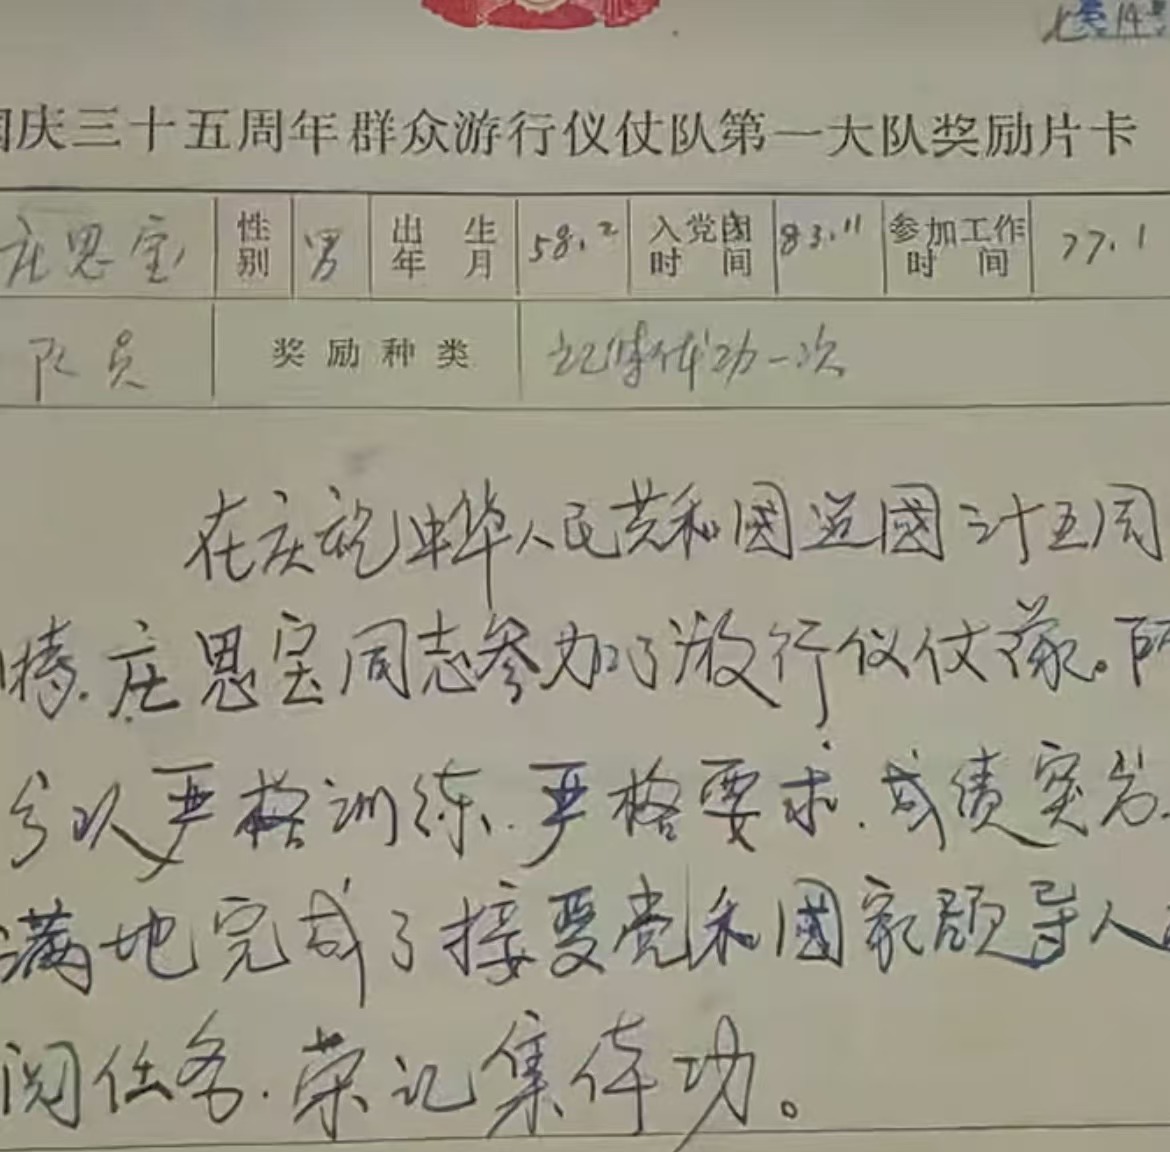 国庆三十五周年群众游行仪仗队第一大队奖励片卡
庄思宝 性别 男 出生年月 58.2 入党团时间 83.11 参加工作时间 77.1
队员 奖励种类 记集体功一次
在庆祝中华人民共和国造國三十五周
庄思宝同志参加了游行仪仗隊。所
分队严格训练.严格要求.成绩突出.
满地完成了接受党和國家领导人
阅任务.荣记集体功。